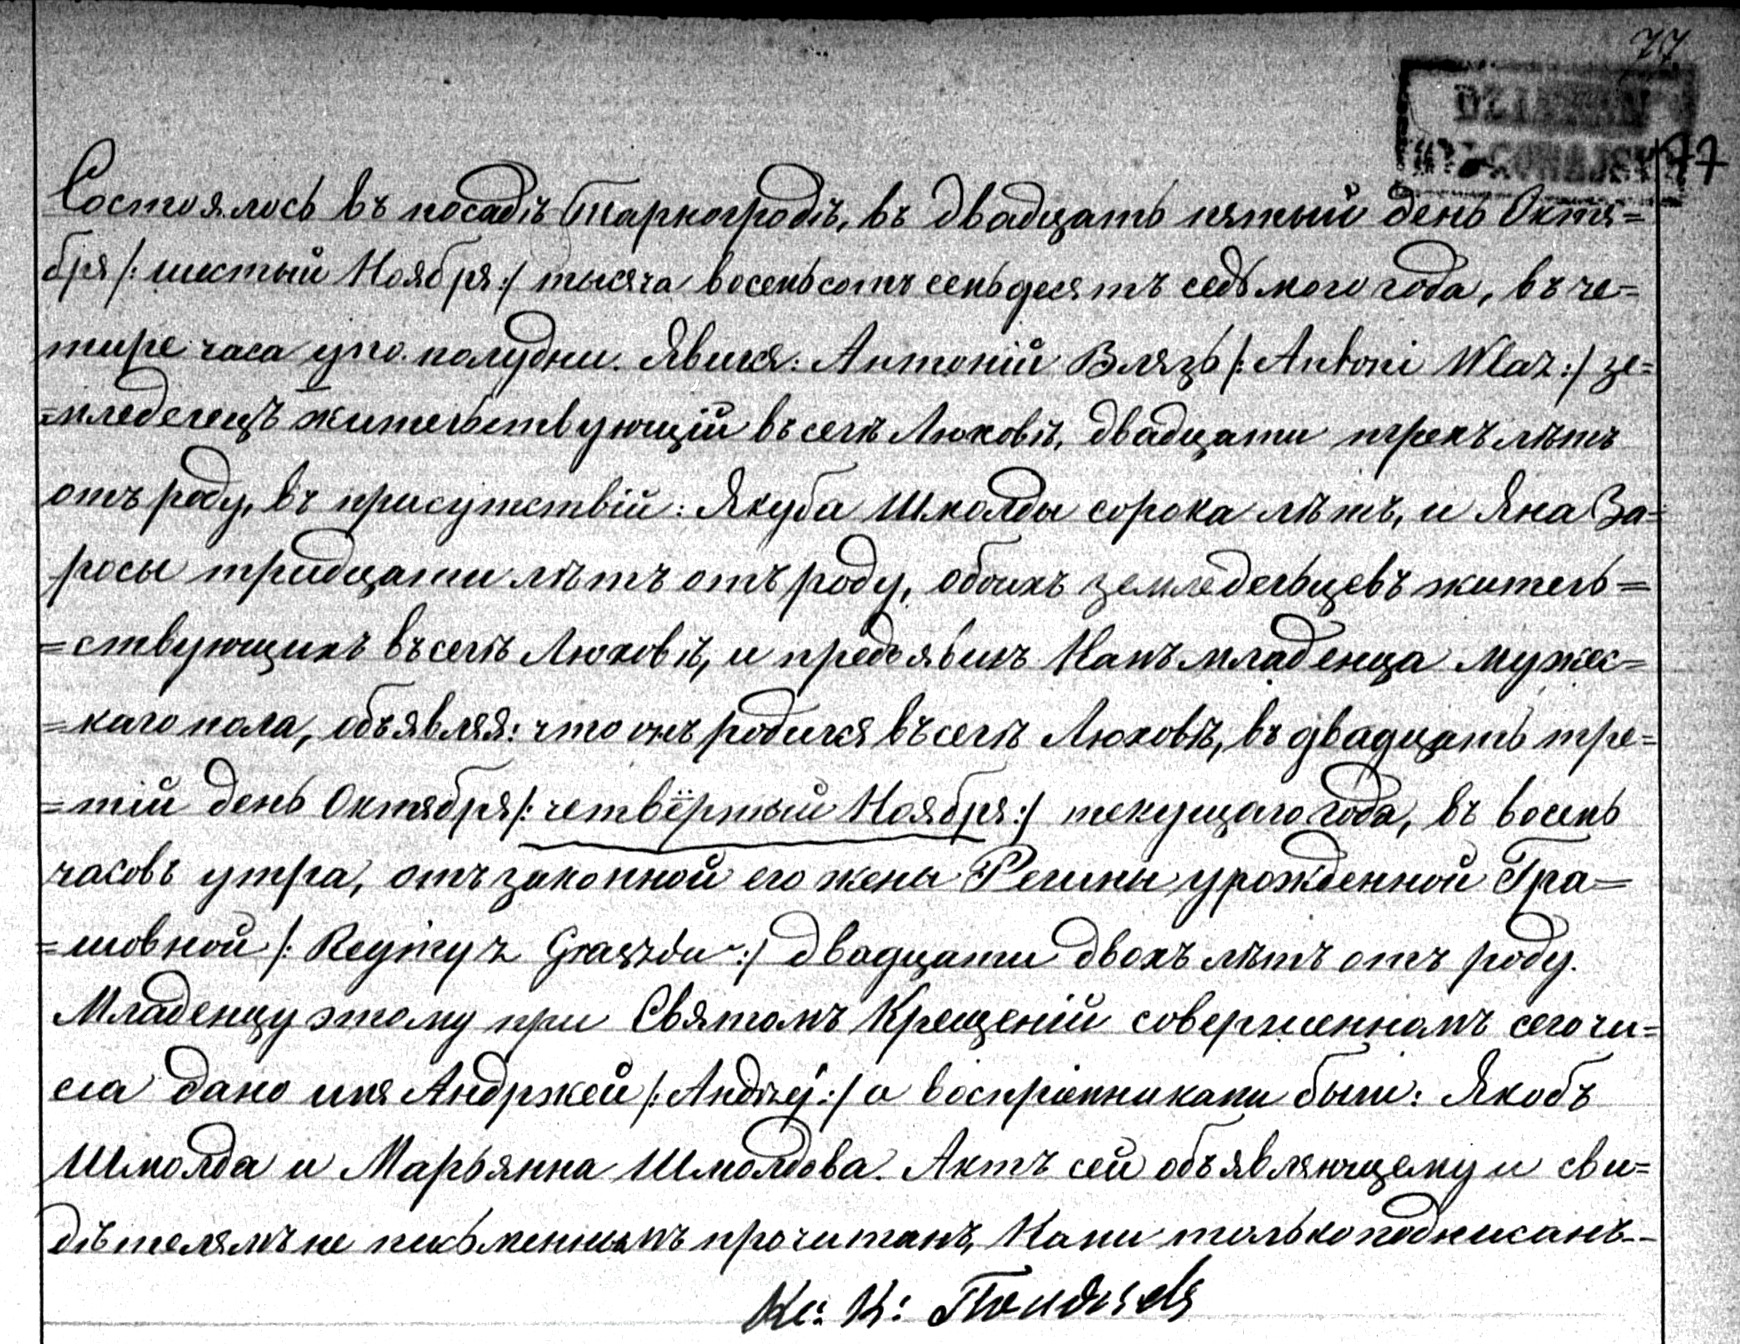 77
77
Состоялось въ посадѣ Тарногродѣ, въ двадцать пятый день Октя=
бря /: шестый Ноября :/ тысяча восемьсотъ семьдесятъ седьмого года, въ че=
тыре часа по полудни. Явился: Антоній Влязь /: Antoni Wlaz :/ зе=
=мледелецъ жительствующій въ селѣ Люховѣ, двадцати трехъ лѣтъ
отъ роду, въ присутствій: Якуба Шмолды сорока лѣтъ, и Яна За=
росы тридцати лѣтъ отъ роду, обоихъ земледельцевъ житель=
=ствующихъ въ селѣ Люховѣ, и предъявилъ Намъ младенца мужес=
=каго пола, объявляя: что онъ родился въ селѣ Люховѣ, въ двадцать тре=
=тій день Октября /: четвёртый Ноября :/ текущаго года, въ восемь
часовъ утра, отъ законной его жены Регины урожденной Гра=
=шовной /: Reginy z Graszów :/ двадцати двохъ лѣтъ отъ роду.
Младенцу этому при Святомъ Крещеній совершенномъ сего чи=
сла дано имя Андржей /: Andrzéj :/ а воспріемниками были: Якобъ
Шмолда и Марьянна Шмолдова. Актъ сей объявляющему и сви=
дѣтелямъ не письменнымъ прочитанъ, Нами только подписанъ.--
Кс: К: